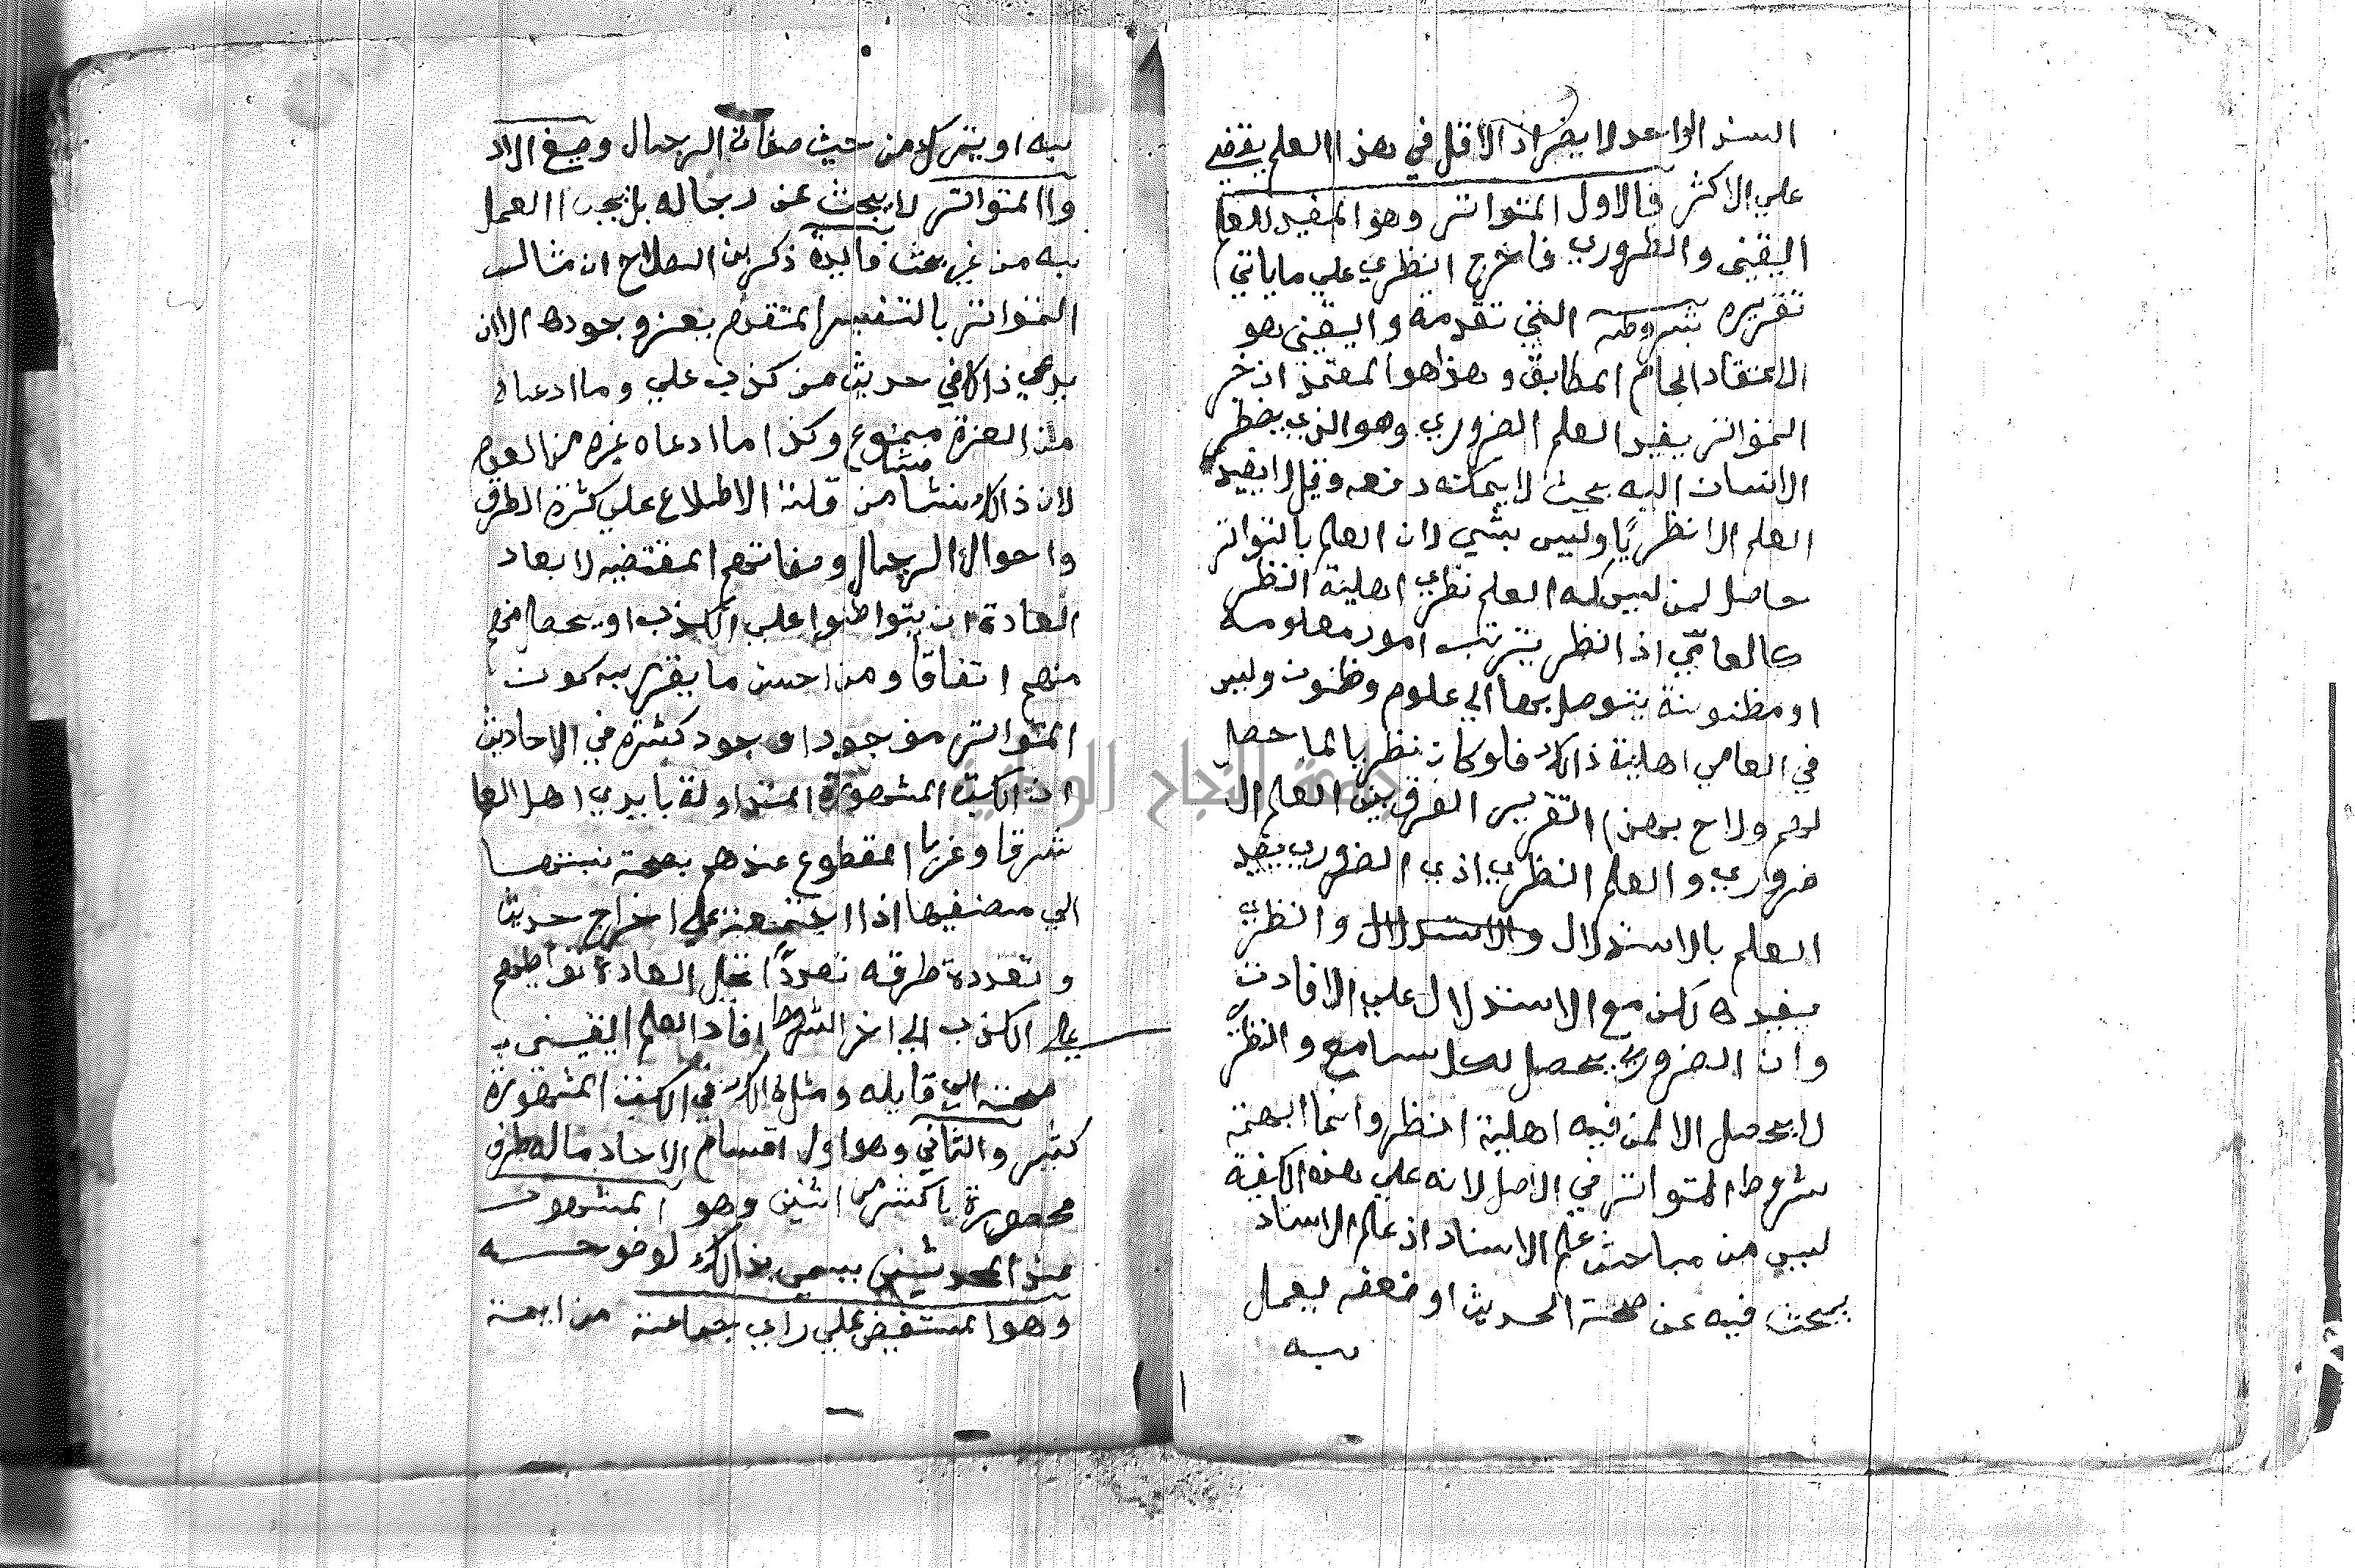 السند الواحد لا يضر اذ الاقل في هذا العلم يقضي
علي الاكثر فالاول المتواتر وهو المفيد للعلم
اليقيني والظروري فاخرج النظري علي ما ياتي
تقريره بشروطه التي تقدمة واليقيني هو
الاعتقاد الجازم المطابق وهذا هو المعتمد ان خبر
المتواتر يفيد العلم الضروري وهو الذي يضطر
الانسان اليه بحيث لا يمكنه دفعه وقيل لا يفيد
العلم الا نظريًا وليس بشي لان العلم بالتواتر
حاصل لمن ليس له العلم نظري اهلية النظر
كالعامي اذ النظر يترتب امور معلومة
او مظنونة يتوصل بها الي علوم وظنون وليس
في العامي اهلية ذالك فلو كان نظريا لما حصل
لهم ولاح بهذا التقرير الفرق بين العلم ال
ضروري والعلم النظري اذ الضروري يفيد
العلم بالاستدلال والاستدلال والنظري
يفيده لكن مع الاستدلال علي الافادت
وان الضروري يحصل لكل سامع والنظري
لا يحصل الا لمن فيه اهلية النظر وانما ابهمة
شروط المتواتر في الاصل لانه علي هذه الكيفية
ليس من مباحث علم الاسناد اذ علم الاسناد
يبحث فيه عن صحة الحديث او ضعفه ليعمل
به
به او يترك من حيث صفات الرجال وصيغ الاد
واالمتواتر لا يبحث عن رجاله بل يجب العمل
به من غير بحث فايدة ذكر ابن الصلاح ان مثال
المتواتر بالتفسير المتقدم يعز وجوده الا ان
يدعي ذالك في حديث من كذب علي وما ادعاه
من العزة ممنوع وكذا ما ادعاه غيره من العدم
لان ذالك نشا من قلة الاطلاع علي كثرة الطرق
واحوال الرجال وصفاتهم المقتضيه لابعاد
العادة ان يتواطئوا علي الكذب او يحصل منهم
منهم اتفاقا ومن احسن ما يقرر به كون
المتواتر موجودا وجود كثرة في الاحاديث
ان الكتب المشهورة المتداولة بايدي اهل العلم
شرقا وغربا المقطوع عندهم بصحة نسبتها
الي مصنفيها اذا اجتمعة علي اخراج حديث
وتعددة طرقه تعددًا تحيل العادة تواطؤهم
علي الكذب الي اخر الشروط افاد العلم اليقيني ب
صحته الي قايله ومثل ذالك في الكتب المشهورة
كثير والثاني وهو اول اقسام الاحاد ما له طرق
محصورة باكثر من اثنين وهو المشهور
عند المحدثين سمي بذالك لوضوحه
وهو المستفيض علي راي جماعة من ايمة